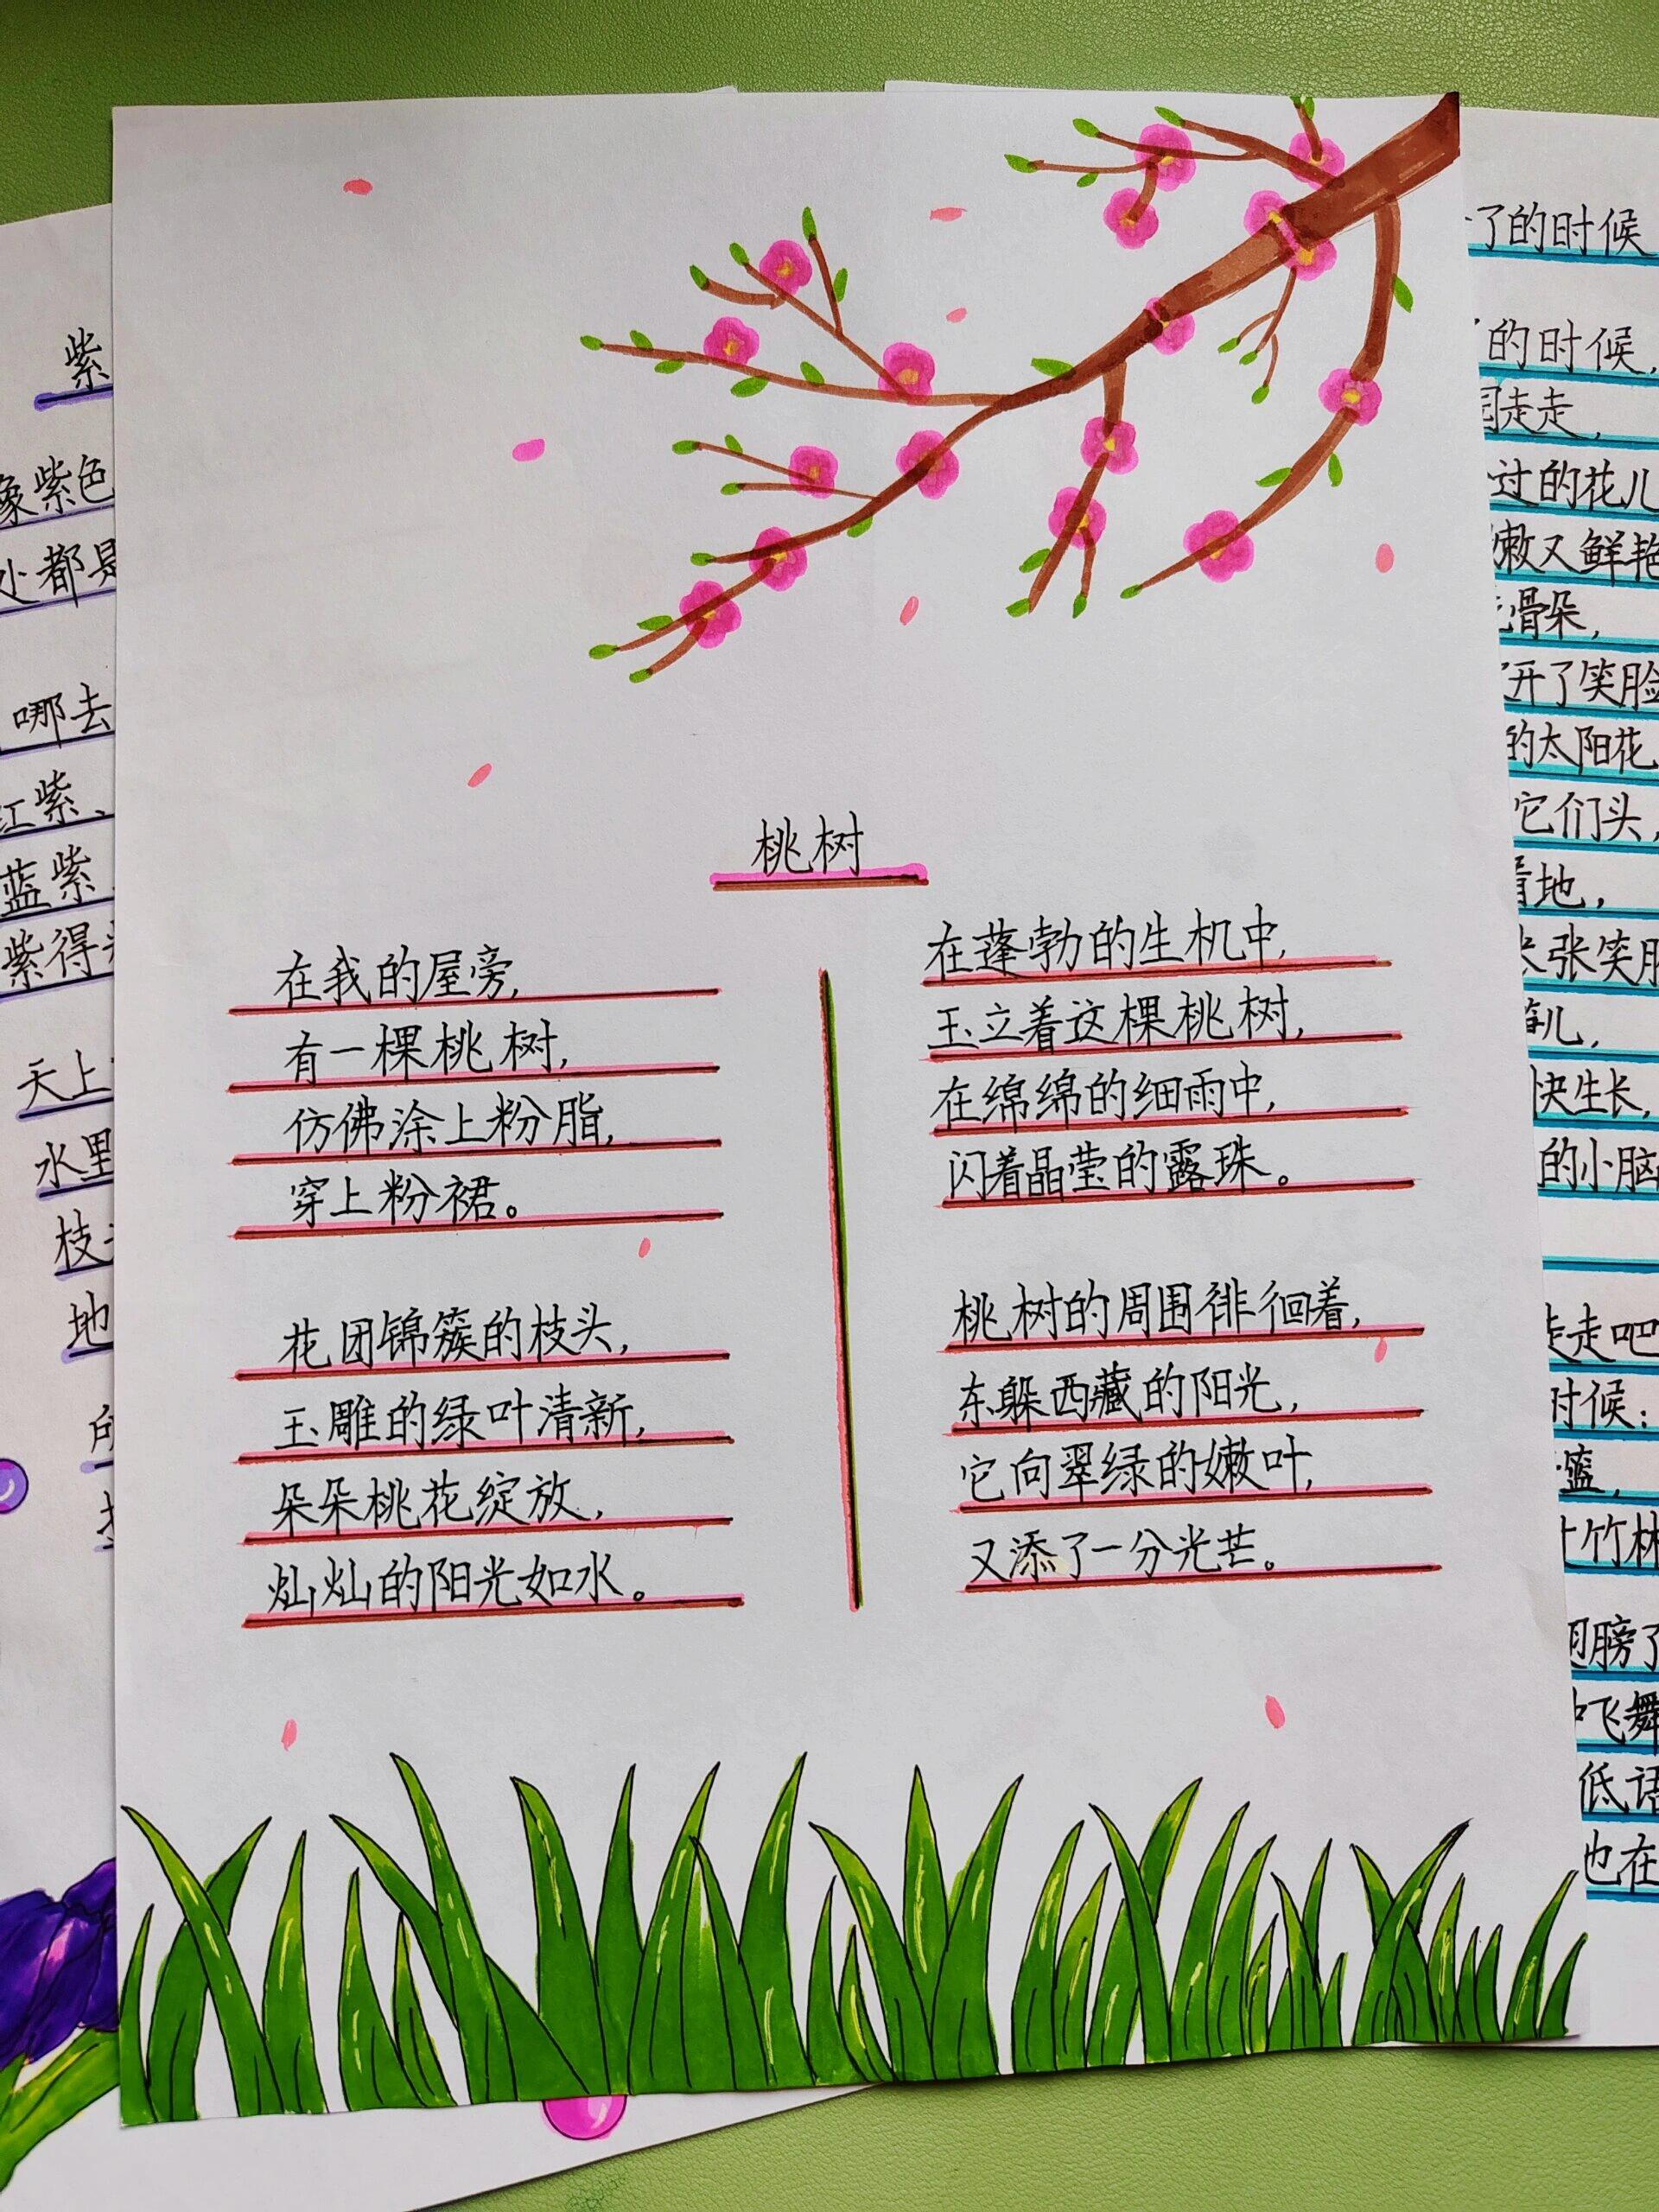 桃树
在我的屋旁,
有一棵桃树,
仿佛涂上粉脂,
穿上粉裙。
花团锦簇的枝头,
玉雕的绿叶清新,
朵朵桃花绽放,
灿灿的阳光如水。
在蓬勃的生机中,
玉立着这棵桃树,
在绵绵的细雨中,
闪着晶莹的露珠。
桃树的周围徘徊着,
东躲西藏的阳光,
它向翠绿的嫩叶,
又添了一分光芒。
紫
像紫色
处都是
哪去
红紫、
蓝紫
紫得
天上
水里
枝
地
了的时候
的时候,
园走走,
过的花儿
嫩又鲜艳
骨朵,
开了笑脸
的太阳花
它们头,
着地,
张张笑脸
儿,
快生长,
的小脑
走走吧
时候:
篮,
竹林
翅膀了
飞舞
低语
也在